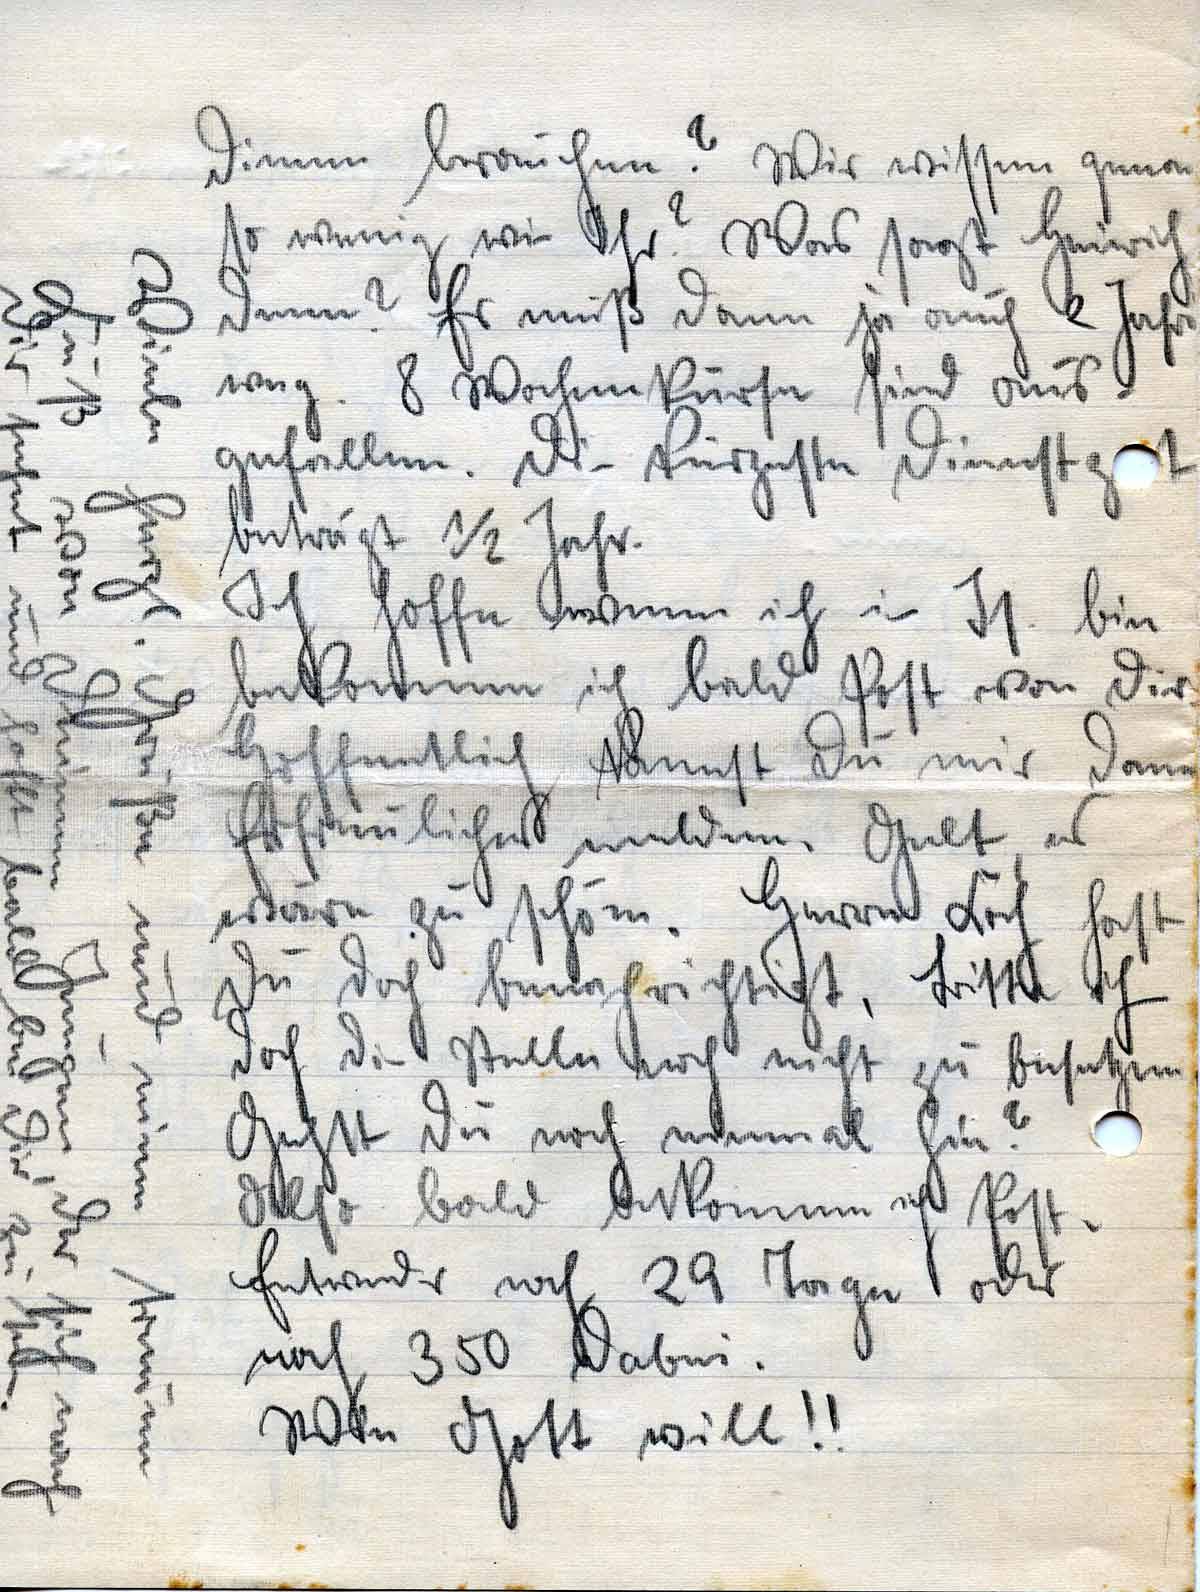 dienen brauchen? Wir wissen genau
so wenig wie Ihr? Was sagt Heinrich
denn? Er muß dann ja auch 2 Jahre
weg. 8 Wochenkurse sind aus-
gefallen. Die kürzeste Dienstz t
beträgt 1/2 Jahr.
Ich hoffe wenn ich in Is. bin
bekomme ich bald Post von Dir.
Hoffentlich kannst Du mir dann
Erfreuliches melden. Gelt, es
wäre zu schön. Herrn Koch hast
Du doch benachrichtigt, bitte ich
doch die Stelle noch nicht zu besetzen.
Gehst Du noch einmal hin?
Also bald bekomme ich Post.
Entweder noch 29 Tage oder
noch 350 dabei.
Wie Gott will!!
Viele herzl. Grüße und einen treuen
Gruß von Deinem Jungen, der sich nach
Dir sehnt und hofft bald bei Dir zu sein.